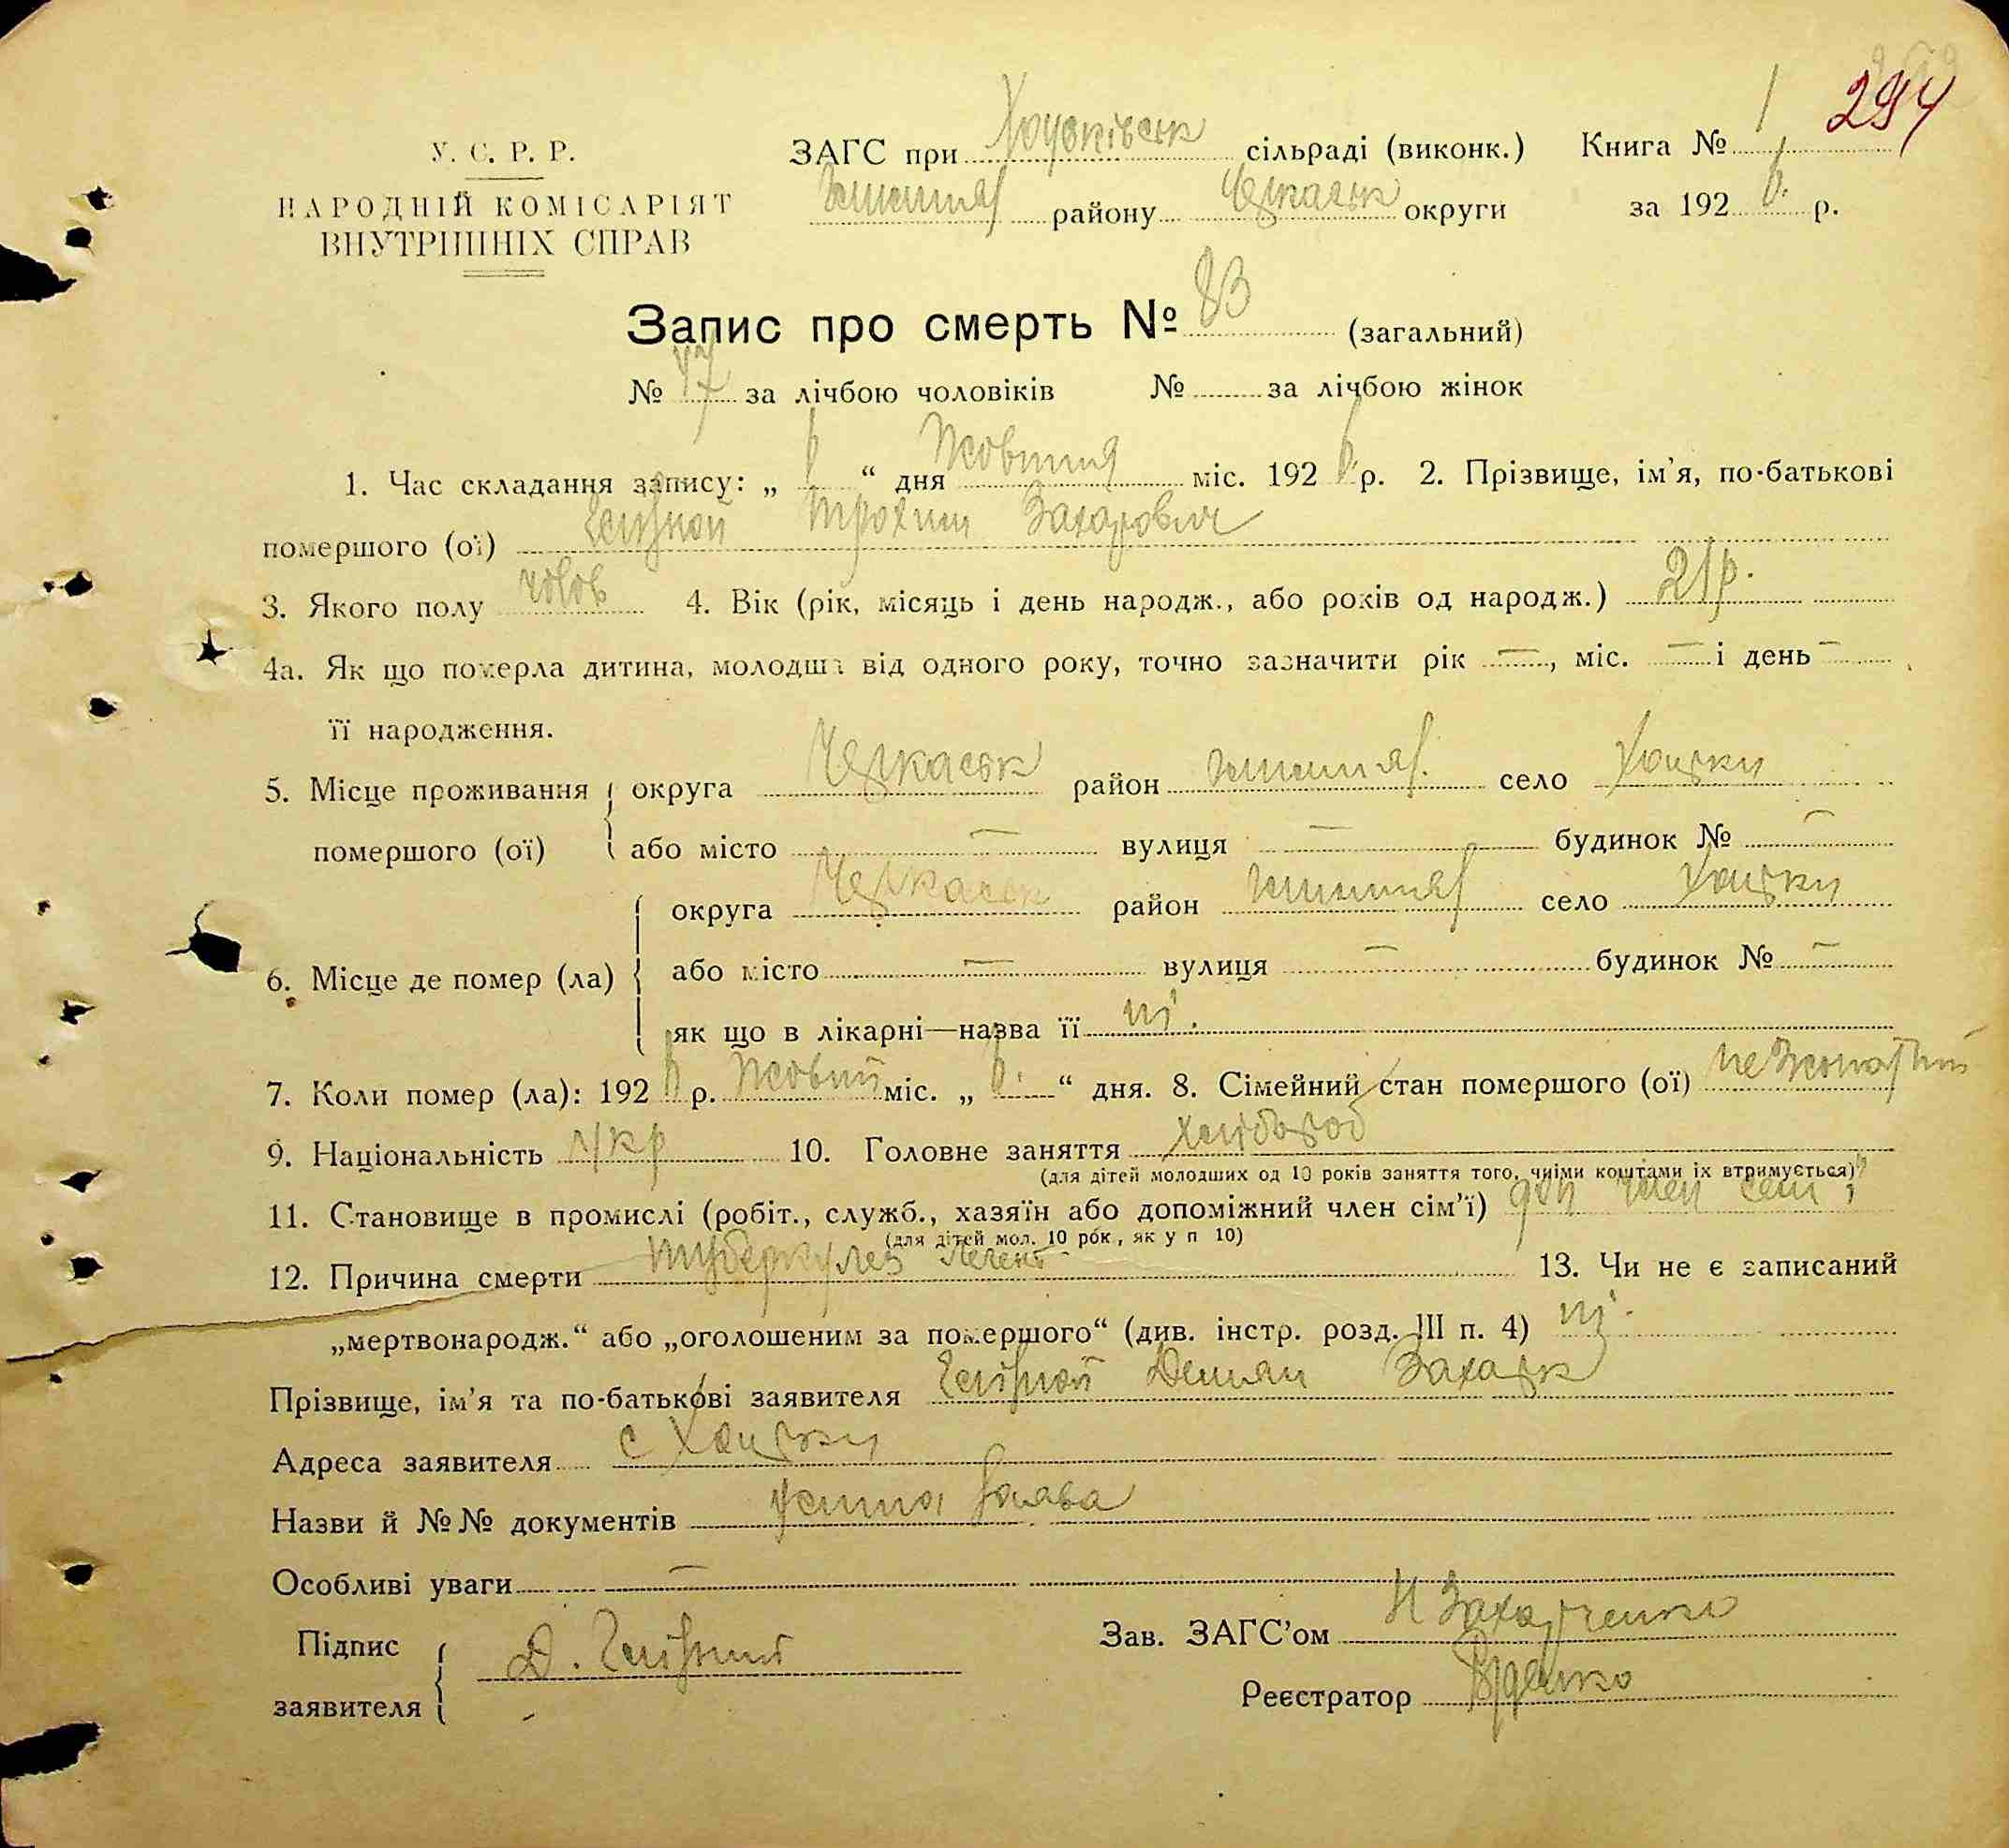 294
У. С. Р. Р.
НАРОДНІЙ КОМІСАРІЯТ
ВНУТРІШНІХ СПРАВ
ЗАГС при Хоцківськ сільраді (виконк.) Книга № 1
району Черкаськ округи за 192 р.
Запис про смерть № 83 (загальний)
№ 47 за лічбою чоловіків № за лічбою жінок
1. Час складання запису: „ “ дня Жовтня міс. 192 р. 2. Прізвище, ім’я, по-батькові
помершого (ої) Трохим Захарович
3. Якого полу чолов 4. Вік (рік, місяць і день народж., або років од народж.) 21 р.
4а. Як що померла дитина, молодша від одного року, точно зазначити рік —, міс. — і день —
її народження.
5. Місце проживання округа Черкаськ район село Хоцьки
помершого (ої) або місто — вулиця — будинок № —
округа Черкаськ район село Хоцьки
6. Місце де помер (ла) або місто — вулиця — будинок № —
як що в лікарні—назва її ні.
7. Коли помер (ла): 192 р. Жовтн міс. „ “ дня. 8. Сімейний стан помершого (ої) не жонатий
9. Національність укр 10. Головне заняття хлібороб
(для дітей молодших од 10 років заняття того, чиїми коштами їх втримується)
11. Становище в промислі (робіт., служб., хазяїн або допоміжний член сім’ї) доп член сем ї
(для дітей мол. 10 рок., як у п 10)
12. Причина смерти туберкулез легень 13. Чи не є записаний
„мертвонародж.“ або „оголошеним за помершого“ (див. інстр. розд. III п. 4) ні.
Прізвище, ім’я та по-батькові заявителя Демян Захарк
Адреса заявителя с Хоцьки
Назви й №№ документів усина заява
Особливі уваги —
Підпис
заявителя Д.
Зав. ЗАГС’ом Н Захарченко
Реєстратор